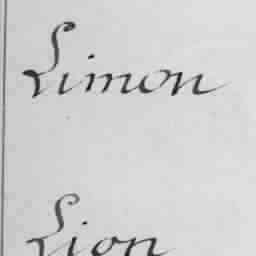 Limon
Lion